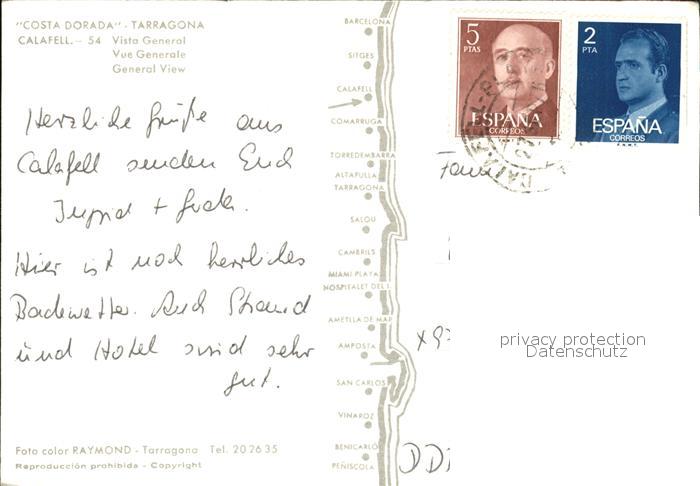 "COSTA DORADA" - TARRAGONA
CALAFELL. - 54 Vista General
Vue Generale
General View
Herzliche Grüße aus
Calafell senden Euch
Ingrid +
Hier ist noch herrliches
Badewetter. Auch Strand
und Hotel sind sehr
gut.
Foto color RAYMOND - Tarragona Tel. 20 26 35
Reproducción prohibida - Copyright
BARCELONA
SITGES
CALAFELL
COMARRUGA
TORREDEMBARRA
ALTAFULLA
TARRAGONA
SALOU
CAMBRILS
MIAMI PLAYA
HOSPITALET DEL I.
AMETLLA DE MAR
AMPOSTA
SAN CARLOS
VINAROZ
BENICARLÓ
PEÑISCOLA
5
PTAS
ESPAÑA
CORREOS
2
PTA
ESPAÑA
CORREOS
F.N.M.T.
Fam
privacy protection
Datenschutz